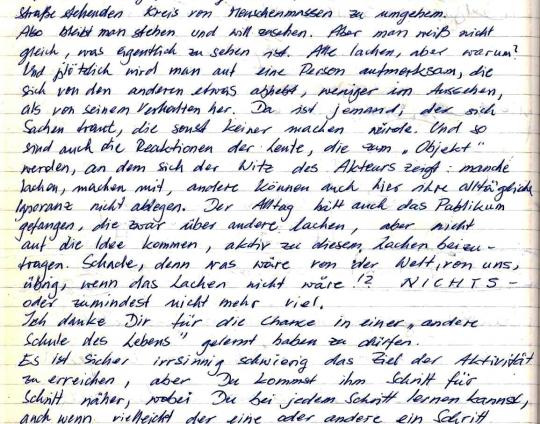 straße stehenden Kreis von Menschenmassen zu umgeben.
Also bleibt man stehen und will zusehen. Aber man weiß nicht
gleich, was eigentlich zu sehen ist. Alle lachen, aber warum?
Und plötzlich wird man auf eine Person aufmerksam, die
sich von den anderen etwas abhebt, weniger im Aussehen,
als von seinem Verhalten her. Da ist jemand, der sich
Sachen traut, die sonst keiner machen würde. Und so
sind auch die Reaktionen der Leute, die zum „Objekt"
werden, an dem sich der Witz des Akteurs zeigt: manche
lachen, machen mit, andere können auch hier ihre alltägliche
Ignoranz nicht ablegen. Der Alltag hält auch das Publikum
gefangen, die zwar über andere lachen, aber nicht
auf die Idee kommen, aktiv zu diesem Lachen beizu-
tragen. Schade, denn was wäre von der Welt, von uns,
übrig, wenn das Lachen nicht wäre!? NICHTS -
oder zumindest nicht mehr viel.
Ich danke Dir für die Chance in einer „andere
Schule des Lebens" gelernt haben zu dürfen.
Es ist sicher irrsinnig schwierig das Ziel der Aktivität
zu erreichen, aber Du kommst ihm Schritt für
Schritt näher, wobei Du bei jedem Schritt lernen kannst,
auch wenn vielleicht der eine oder andere ein Schritt